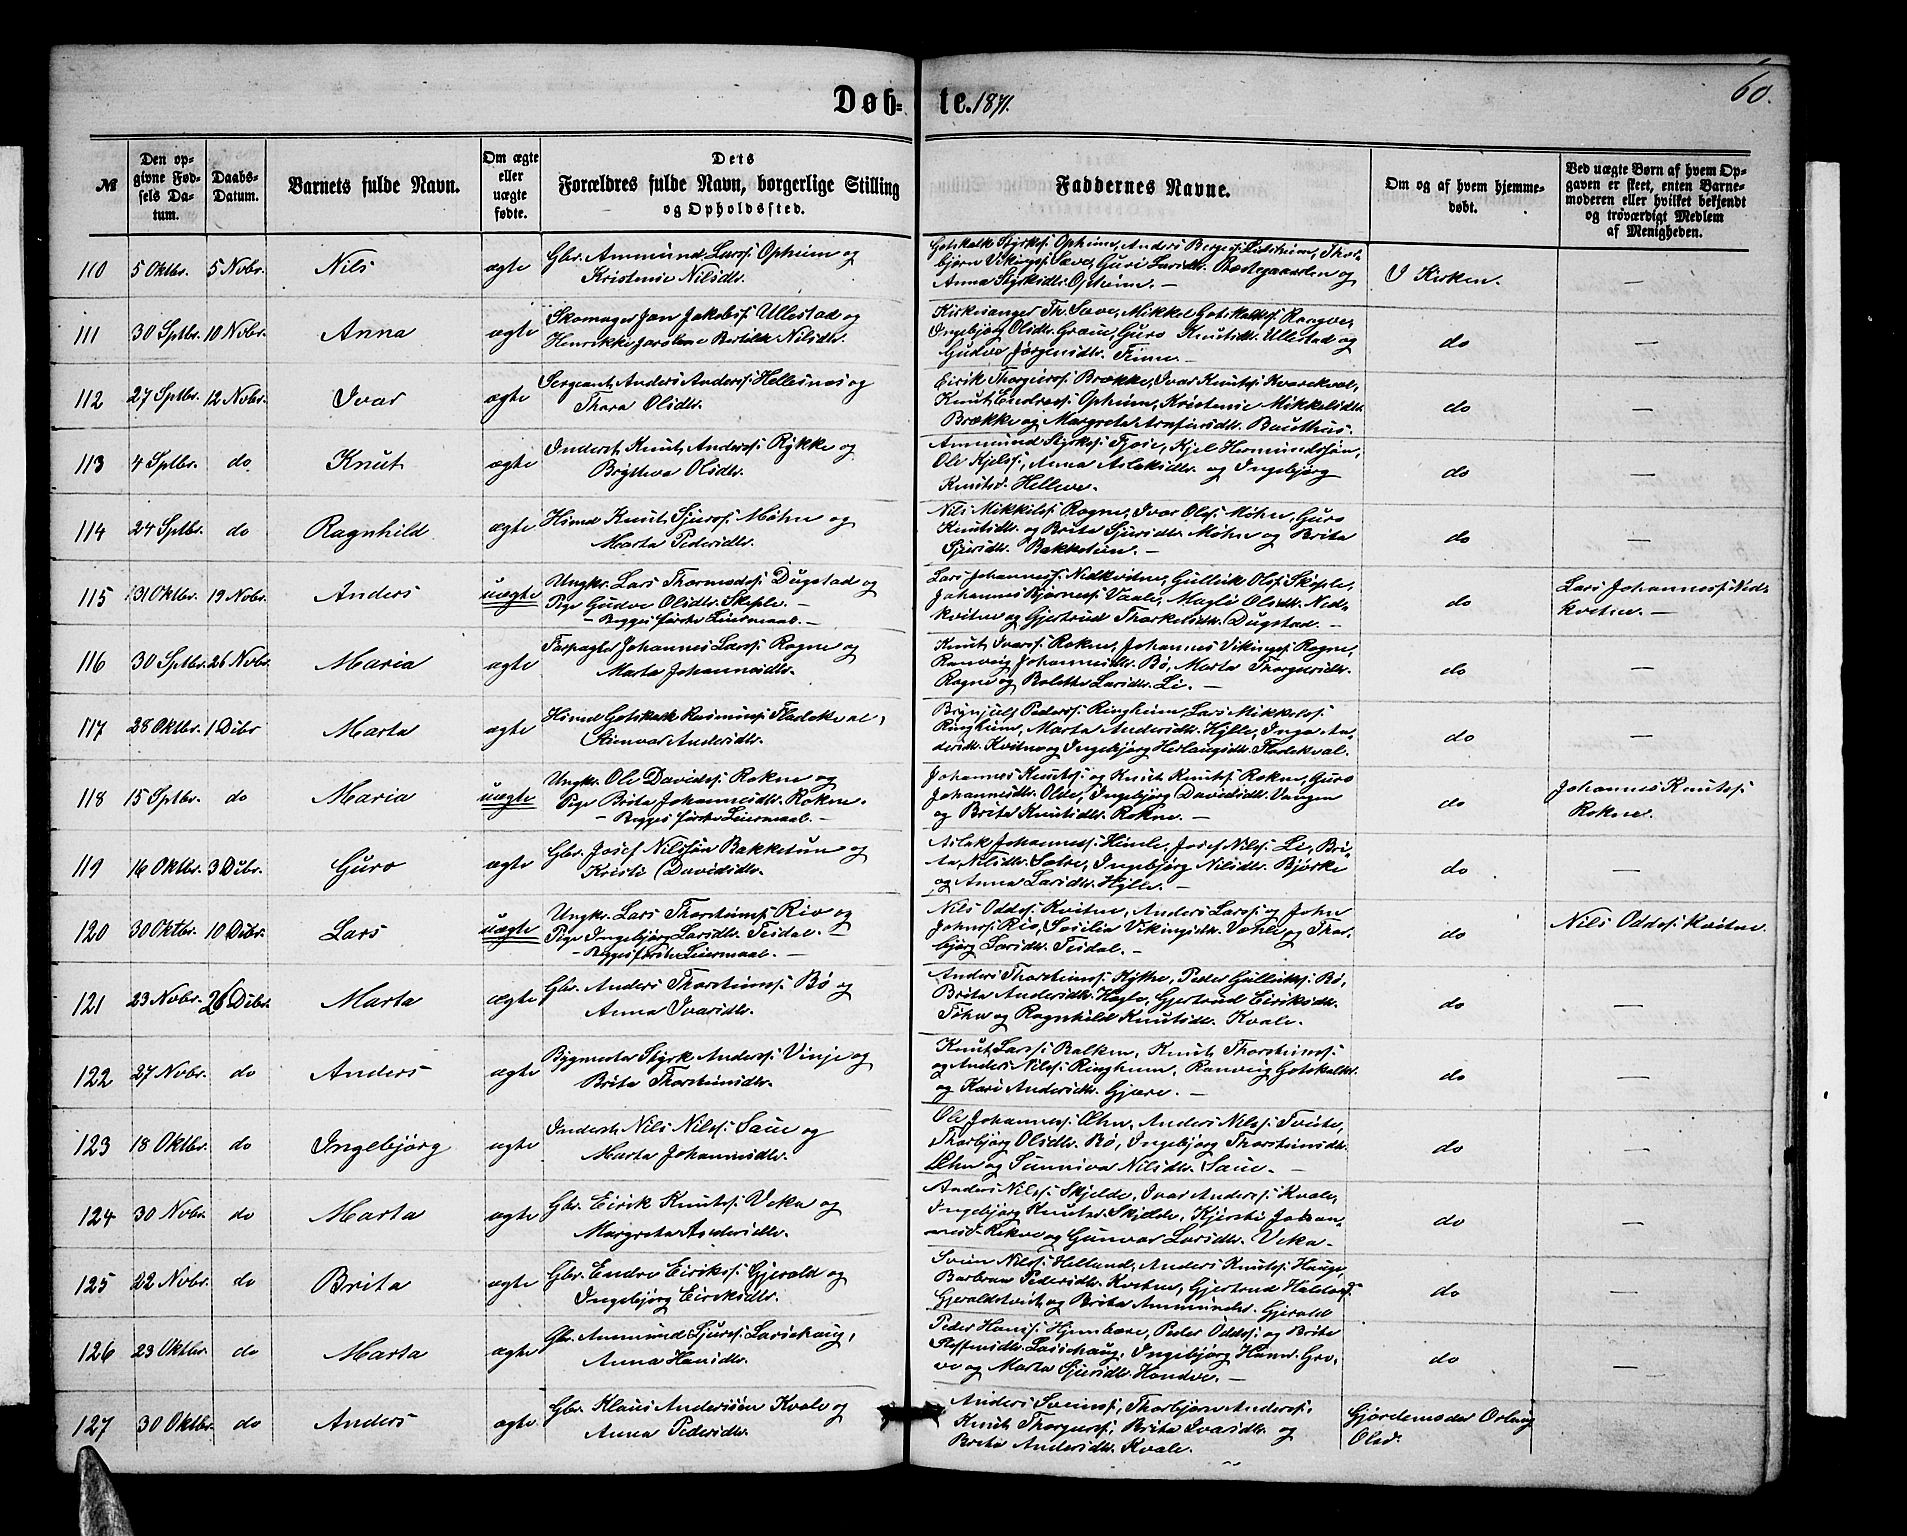 60.
Døb-te. 1871.
№
Den opgivne Fødsels Datum.
Daabs-Datum.
Barnets fulde Navn.
Om ægte eller uægte fødte.
Dets Forældres fulde Navn, borgerlige Stilling og Opholdssted.
Faddernes Navne.
Om og af hvem hjemmedøbt.
Ved uægte Børn af hvem Opgaven er skeet, enten Barnemoderen eller hvilket bekjendt og troværdigt Medlem af Menigheden.
110 5 Oktbr. 5 Novbr. Nils ægte Gbr. Ammund Larss. Opheim og
Kristense Nilsdtr.
Gotskalk Styrkss. Opheim, Anders Berges. Lidsheim, Thor-
bjørn Vikings. Save, Guri Larsdtr. Prestegaarden og
Anna Styrksdtr. Opheim. —
I Kirken. —
111 30 Sptbr. 10 Novbr. Anna ægte Skomager Jan Jakobss. Ullestad og
Henrikke Jarolene Bertilde Nilsdtr.
Kirkesanger Th. Save, Mikkel Gotskalkss. Rongve,
Ingebjørg Olsdtr. Graue, Guro Knutsdtr. Ullestad og
Gudve Jørgensdtr. Finne. —
do —
112 27 Sptbr. 12 Novbr. Ivar ægte Sergeant Anders Anderss. Hellesnæs og
Thora Olsdtr.
Eirik Thorgeirss. Brække, Ivar Knutss. Kvarekval,
Knut Endress. Opheim, Kristense Mikkelsdtr.
Brække og Margreta Arnfinsdtr. Bauthus.
do —
113 4 Sptbr. do Knut ægte Inderst Knut Anderss. Rykke og
Brytteva Olsdtr.
Ammund Styrkss. Fjose, Kjel Hermundssøn,
Ole Kjelss., Anna Aslaksdtr. og Ingebjørg
Knutsd. Helleve.
do —
114 24 Sptbr. do Ragnhild ægte Hsmd Knut Sjurss. Møhn og
Marta Pedersdtr.
Nils Mikkelss. Rogne, Ivar Olss. Møhn, Guro
Knutsdtr. og Brita Sjursdtr. Møhn og Brita
Sjursdtr. Bakketun. —
do —
115 31 Oktbr. 19 Novbr. Anders uægte Ungkr. Lars Thormodss. Dugstad og
Pige Gudve Olsdtr. Skiple. —
— Begges første Leiermaal. —
Lars Johanness. Nedkvitne, Gulleik Olss. Skiple,
Johannes Bjørness. Vaale, Magli Olsdtr. Ned-
kvitne og Gjertrud Thorkelsdtr. Dugstad. —
do Lars Johanness. Ned-
kvitne. —
116 30 Sptbr. 26 Novbr. Maria ægte Forpagter Johannes Larss. Rogne og
Marta Johannesdtr.
Knut Ivarss. Rokne, Johannes Vikings. Rogne,
Ranveig Johannesdtr. Bø, Marta Thorgersdtr.
Rogne og Bolette Larsdtr. Li. —
do —
117 28 Oktbr. 1 Dcbr Marta ægte Hsmd Gotskalk Rasmuss. Flatekval,
Steinvor Andersdtr.
Brynjulf Pederss. Ringheim, Lars Mikkelss.
Ringheim, Marta Andersdtr. Hylle, Inga An-
dersdtr. Kvitno og Ingebjørg Herlaugsdtr. Flatekval.
do —
118 15 Sptbr. do Maria uægte Ungkr. Ole Davidss. Rokne og
Pige Brita Johannesdtr. Rokne.
— Begges første Leiermaal. —
Johannes Knutss. og Knut Knutss. Rokne, Guro
Johannesdtr. Olde, Ingebjørg Davidsdtr. Vangen
og Brita Knutsdtr. Rokne. —
do Johannes Knutss.
Rokne.
119 16 Oktbr. 3 Dcbr. Guro ægte Gbr. Josef Nilssøn Bakketun og
Kristi Davidsdtr.
Aslak Johanness. Himle, Josef Nilss. Li, Bri-
ta Nilsdtr. Sætre, Ingebjørg Nilsdtr. Bjørke
og Anna Larsdtr. Hylle. —
do —
120 30 Oktbr. 10 Dcbr. Lars uægte Ungkr. Lars Thorsteinss. Rio og
Pige Ingebjørg Larsdtr. Teidal. —
— Begges første Leiermaal. —
Nils Oddss. Kvitne, Anders Larss. og John
Johnss. Rio, Sesilia Vikingsdtr. Væhle og Thor-
bjørg Larsdtr. Teidal. —
do Nils Oddss. Kvitne.
121 23 Novbr. 26 Dcbr. Marta ægte Gbr. Anders Thorsteinss. Bø og
Anna Ivarsdtr.
Anders Thorsteinss. Kytte, Peder Gulleikss. Bø,
Brita Andersdtr. Haglo, Gjertrud Eiriksdtr.
Tøhn og Ragnhild Knutsdtr. Kvale.
do —
122 27 Novbr. do Anders ægte Bygmester Styrk Anderss. Vinje og
Brita Thorsteinsdtr.
Knut Larss. Balken, Knut Thorsteinss.
og Anders Nilss. Ringheim, Ranveig Gotskalksdtr.
og Kari Andersdtr. Gjære. —
do —
123 18 Oktbr. do Ingebjørg ægte Inderst Nils Nilss. Saue og
Marta Johannesdtr.
Ole Johanness. Æhn, Anders Nilss. Tvite,
Thorbjørg Olsdtr. Bø, Ingebjørg Thorsteinsdtr.
Æhn og Sunniva Nilsdtr. Saue. —
do —
124 30 Novbr. do Marta ægte Gbr. Eirik Knutss. Veka og
Margreta Andersdtr.
Anders Nilss. Skjelde, Ivar Anderss. Kvale,
Ingebjørg Knutsd. Skjelde, Kjersti Johan-
nesd. Rekve og Gunvor Larsdtr. Veka.
do —
125 22 Novbr. do Brita ægte Gbr. Endre Eirikss. Gjerald og
Ingebjørg Eiriksdtr.
Svein Nilss. Helland, Anders Knutss. Hauge,
Barbraa Pedersdtr. Kvitne, Gjertrud Haldorsd.
Gjeraldstveit og Brita Ammundsd. Gjerald
do —
126 23 Oktbr. do Marta ægte Gbr. Ammund Sjurss. Lassehaug,
Anna Hansdtr.
Peder Hanss. Hjembære, Peder Oddss. og Brita
Steffensdtr. Lassehaug, Ingebjørg Hansd. Gro-
ve og Marta Sjursdtr. Hondve. —
do —
127 30 Oktbr. do Anders ægte Gbr. Klaus Anderssøn Kvale og
Anna Pedersdtr.
Anders Sveinss., Thorbjørn Anderss.,
Knut Thorgerss., Brita Ivarsdtr. og
Brita Andersdtr. Kvale.
Gjordemoder Orlaug
Olsd.